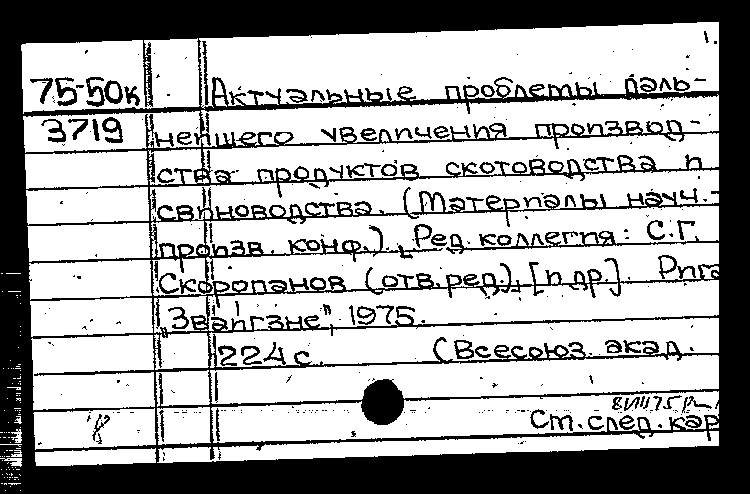 1.
75-50к Актуальные проблемы даль-
3719 нейшего увеличения производ-
ства продуктов скотоводства и
свиноводства. (Материалы науч.-
произв. конф.). Ред. коллегия: С.Г.
Скоропанов (отв. ред.), [и др.]. Рига
„Звайгзне", 1975.
224 с. (Всесоюз. акад.
8
Ст. след. кар